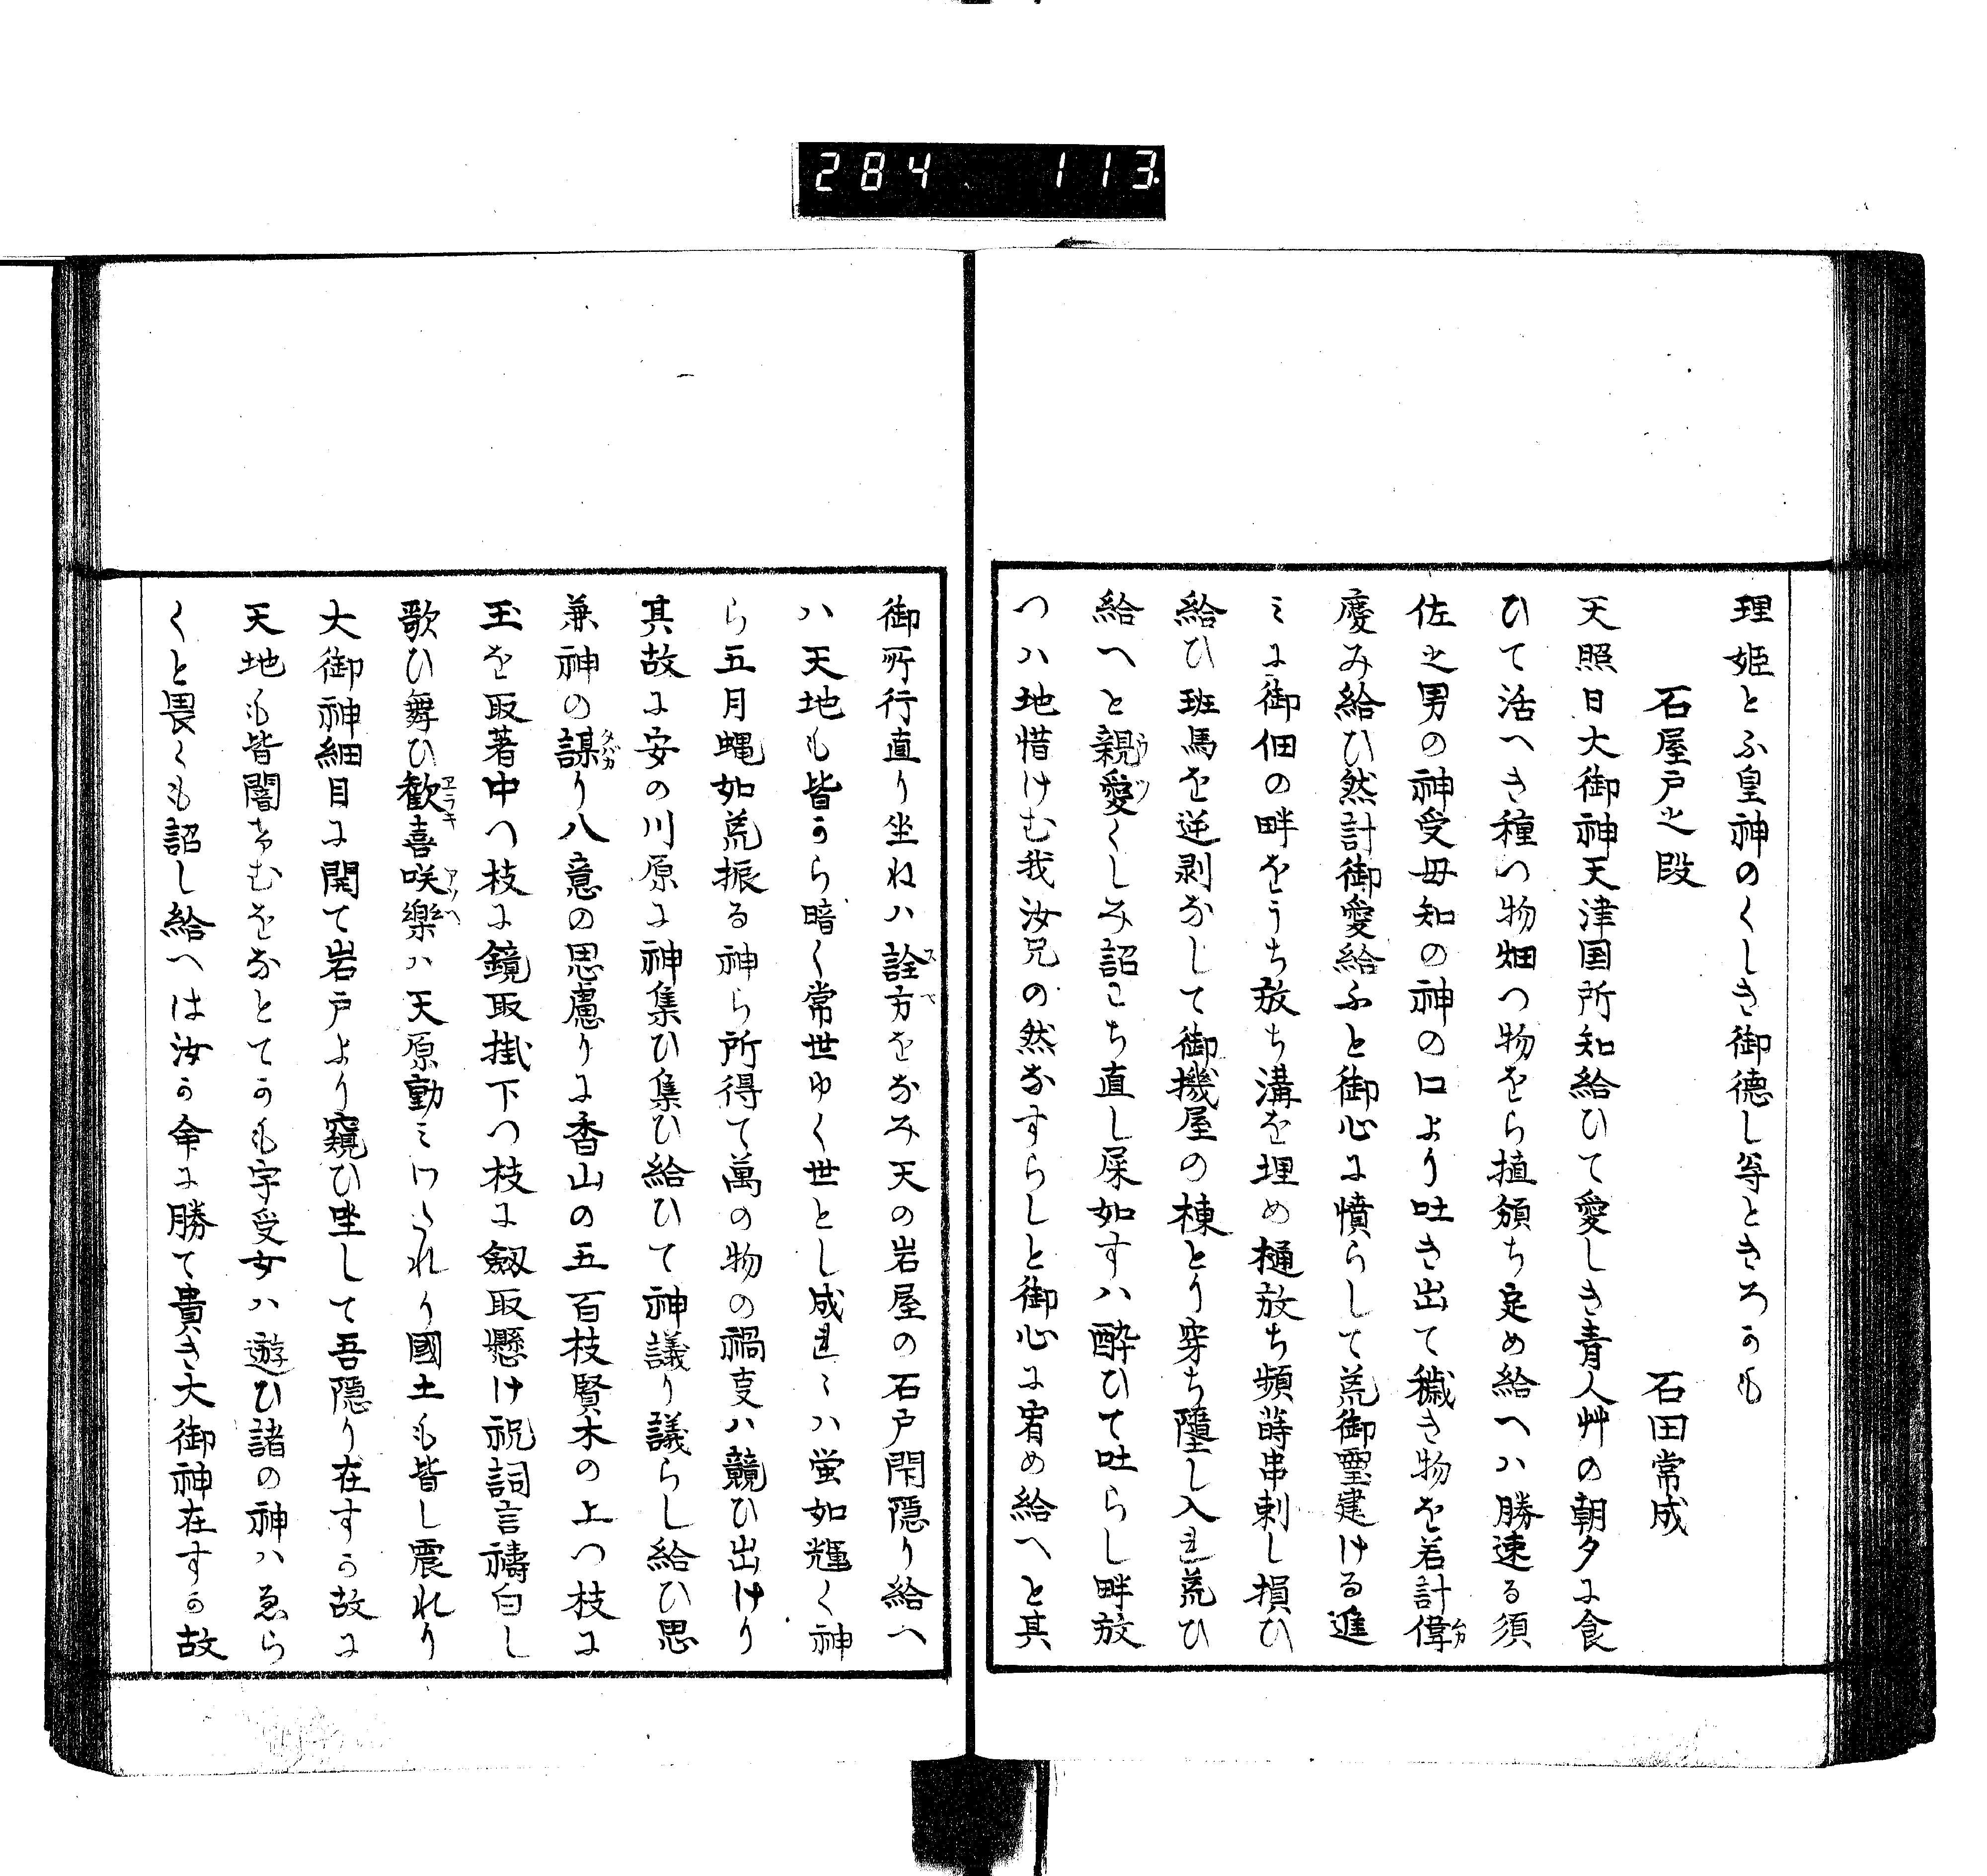 284 113
理姫とふ皇神のくしき御徳し等ときろかも
石屋戸之段 石田常成
天照日大御神天津国所知給ひて愛しき青人艸の朝夕に食
ひて活へき種つ物畑つ物をら植頒ち定め給へハ勝速る須
佐之男の神受毋知の神の口より吐き出て穢き物を若計偉
慶み給ひ然計御愛給ふと御心に憤らして荒御霊建ける進
ミに御佃の畔をうち放ち溝を埋め樋放ち頻蒔串刺し損ひ
給ひ班馬を逆剥なして御機屋の棟とり穿ち墮し入れ荒ひ
給へと親愛くしみ詔こち直し屎如すハ酔ひて吐らし畔放
つハ地惜けむ我汝兄の然なすらしと御心に宥め給へと其
御所行直り坐ねハ詮方をなみ天の岩屋の石戸閇隠り給へ
ハ天地も皆から暗く常世ゆく世とし成れゝハ蛍如輝く神
ら五月蝿如荒振る神ら所得て萬の物の禍事ハ競ひ出けり
其故に安の川原に神集ひ集ひ給ひて神議り議らし給ひ思
兼神の謀り八意の思慮りに香山の五百枝賢木の上つ枝に
玉を取著中つ枝に鏡取掛下つ枝に劔取懸け祝詞言禱白し
歌ひ舞ひ歓喜咲樂ハ天原動ミわたれり國土も皆し震れり
大御神細目に開て岩戸より窺ひ坐して吾隠り在すか故に
天地も皆闇けむをなとてかも宇受女ハ遊ひ諸の神ハゑら
くと畏くも詔し給へは汝か命に勝て貴き大御神在すか故